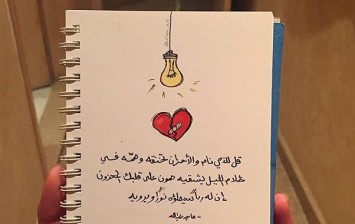 قل للذي نام والأحزان تخنقه وهمّه في
ظلام الليل يشقيه هون على قلبك المحزون
إن له ربًّا سيملؤه نورًا ويرويه